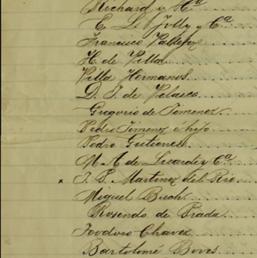 Richard y Hº
E. L. Jolly y Cª
Francisco Vallejo
H. de Villa
Villa Hermanos
D. J. de
Gregorio de Jimenez
Pedro Jimenez e hijo
Pedro Gutierrez
M. A. de y Cª
J. P. Martinez del Rio
Miguel Buch
Rosendo de Prada
Teodoro Chavez
Bartolomé